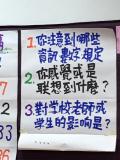 1.你注意到哪些
資訊數據,規定
2.你感覺或是
聯想到什麼?
3.對學校老師或
學生的影响是?
33